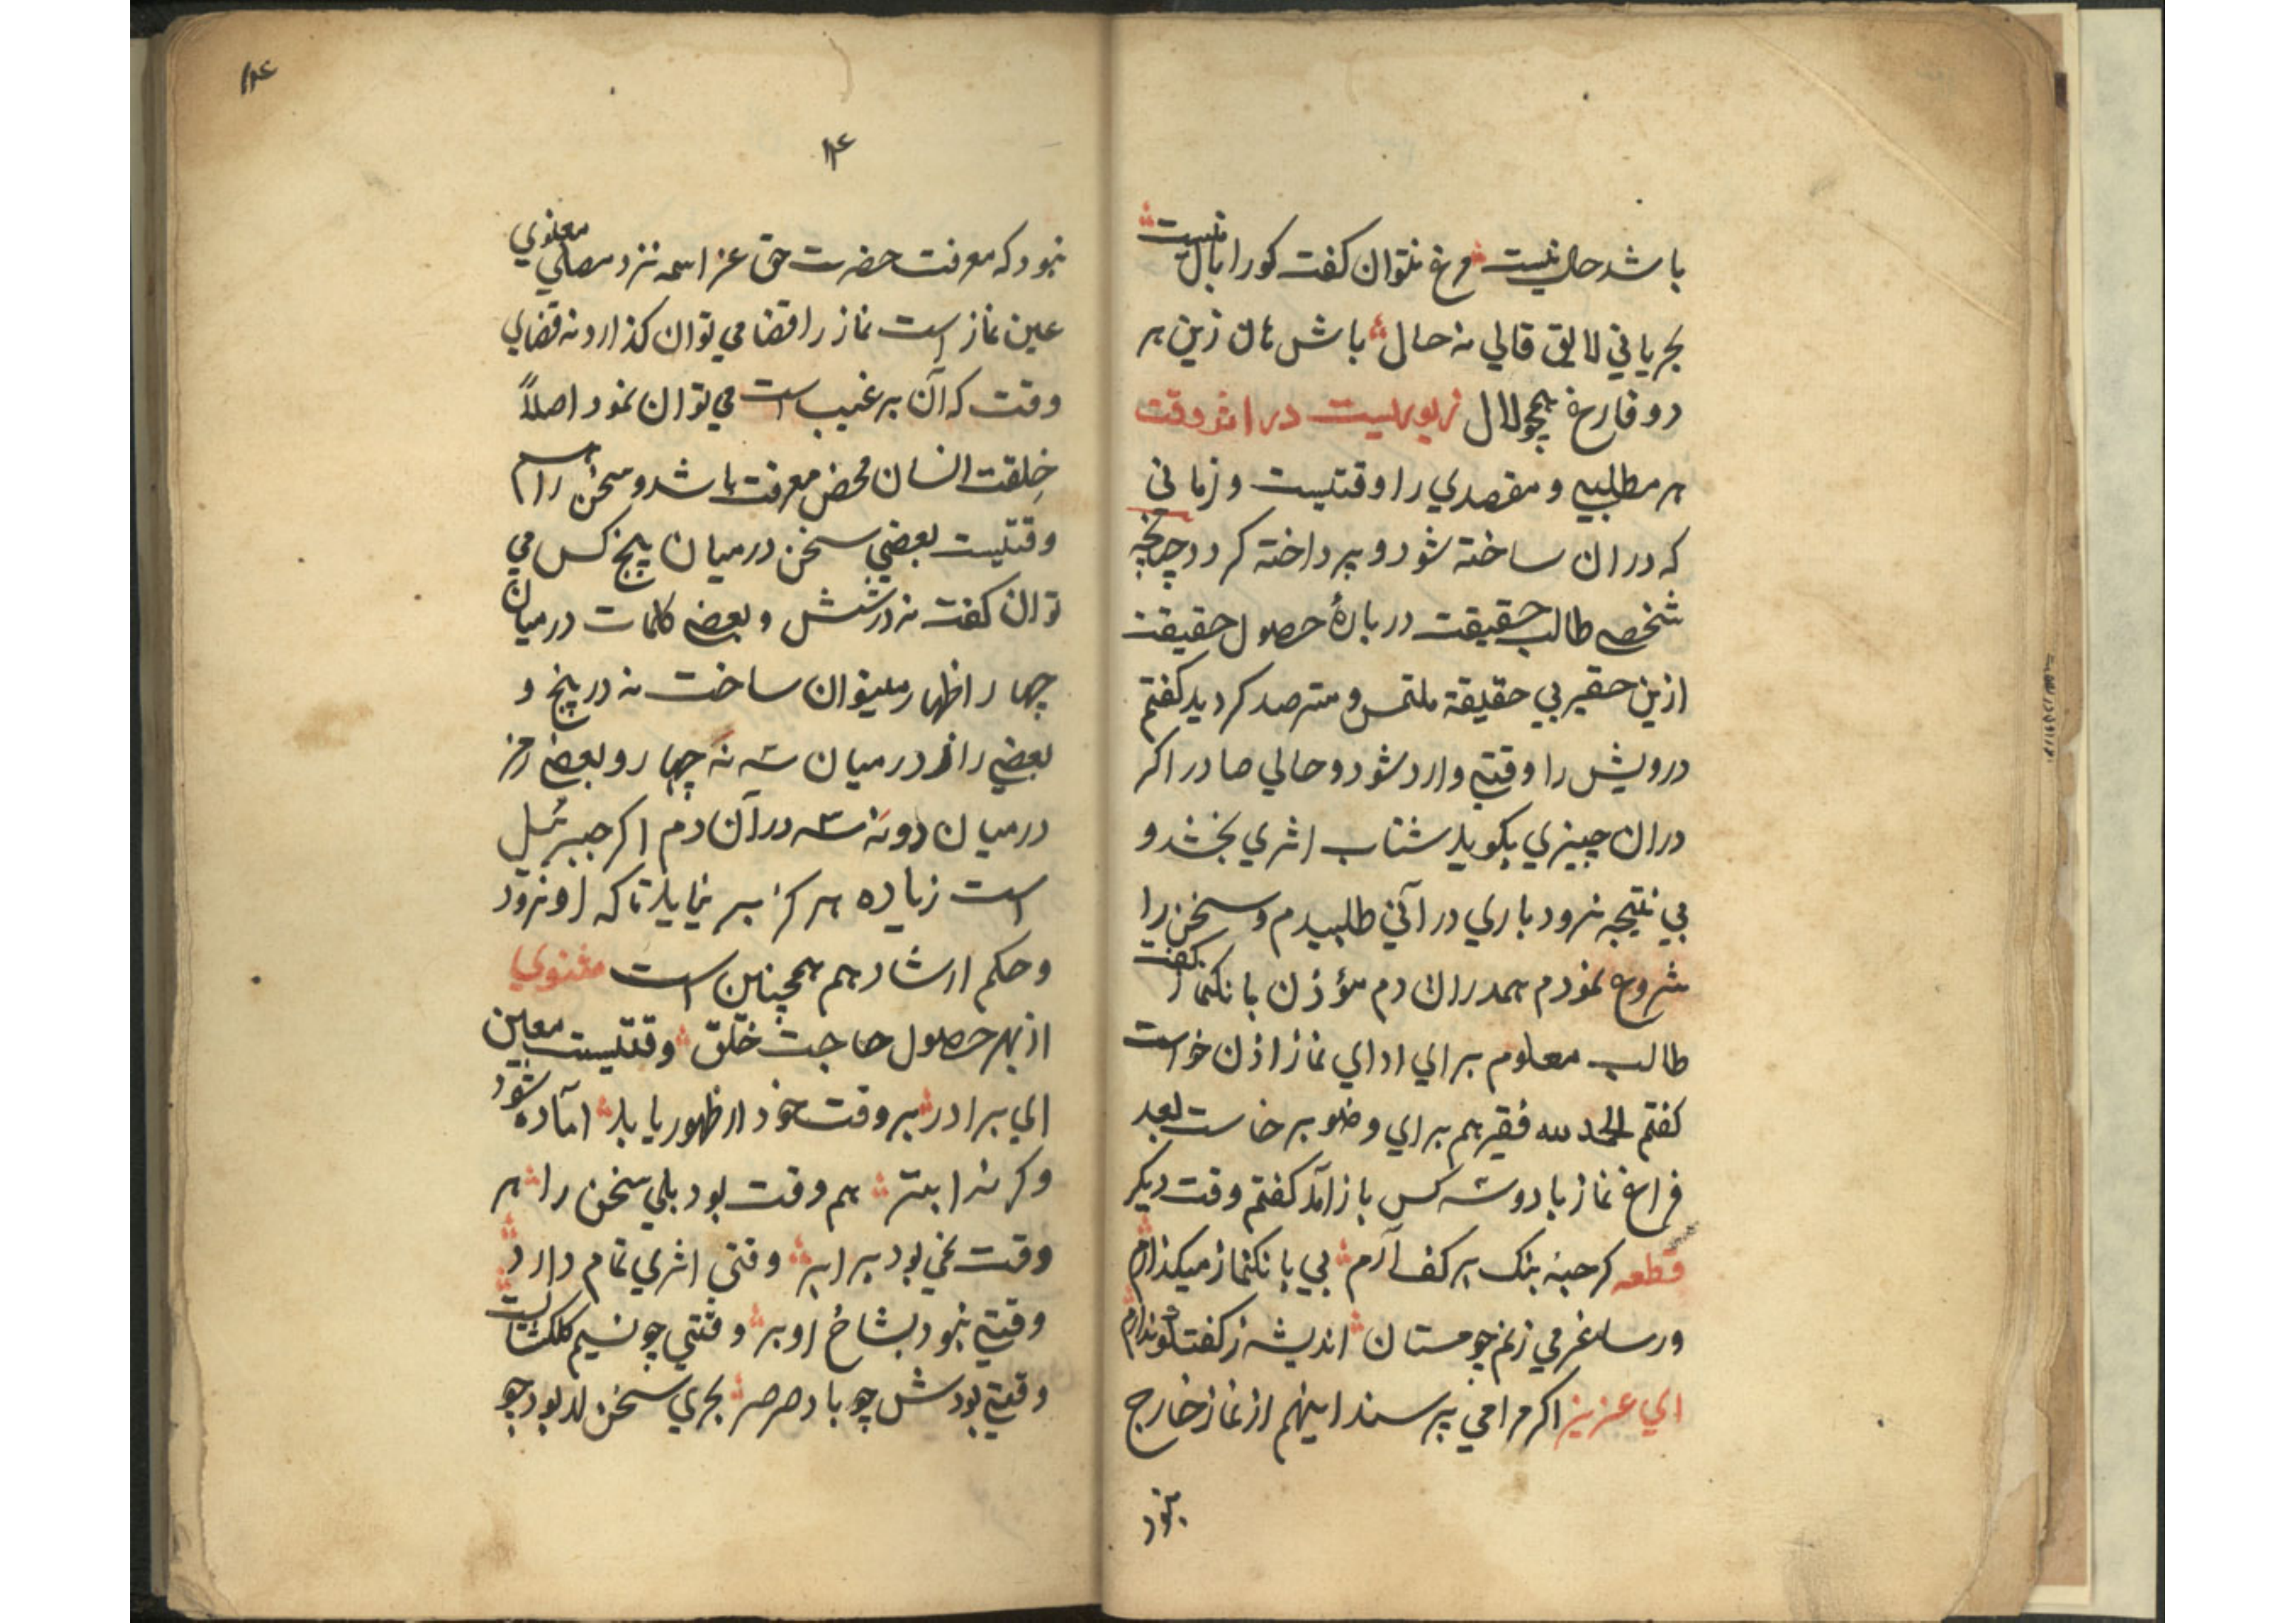 باشد حال نیست مرغ نتوان کفت کورا بال نیست
بحریانی لایق قالي نه حال باش هان زین هر
دو فارغ همچو لال زیوریست در اثر وقت
هر مطلبی و مقصدي را وقتیست و زمانی
که دران ساخته شود و پرداخته کردد چنانچه
شخصی طالب حقیقت دربارهٔ حصول حقیقت
ازین حقیر بي حقیقة ملتمس و مترصد کردید کفتم
درویش را وقتی وارد شود و حالي صادر اکر
دران چیزي بکوید شتاب اثري بخشد و
بي نتیجه نرود باري در آني طلبیدم و سخن را
شروع نمودم همدران دم مؤذن بانکنماز کفت
طالب معلوم براي اداي نماز اذن خواست
کفتم الحمد لله فقیر هم براي وضو برخاست بعد
فراغ نماز با دو سه کس باز آمد کفتم وقت دیکر
قطعه کر حبهٔ بنک بر کف آرم بي بانکنماز میکذارم
ور ساغر مي زنم چو مستان اندیشه ز کفتکو ندارم
اي عزیز اکر مرا مي پرسند اینهم از نماز خارج
نبود
۱۴
۱۴
نبود که معرفت حضرت حق عز اسمه نزد مصلي معنوي
عین نماز است نماز را قضا مي توان کذارد نه قضاي
وقت که آن بر غیب است مي توان نمود اصلاً
خِلقت انسان محض معرفت باشد و سخن را هم
وقتیست بعضي سخن درمیان پنج کس مي
توان کفت نه در شش و بعضی کلمات درمیان
چهار اظهار میتوان ساخت نه در پنج و
بعضي راز درمیان سه نه چهار و بعضی رمز
درمیان دو نه سه در آن دم اکر جبرئیل
است زیاده هرکز سر نیاید تا که او نرود
و حکم ارشاد هم همچنین است مثنوي
از بهر حصول حاجت خلق وقتیست معین
اي برادر بر وقت خود از ظهور یابد آماده شود
وکرنه ابتر هم وقت بود بلي سخن را هر
وقت نمي بود برابر وقتي اثري تمام دارد
وقتی نبود بشاخ او بر وقتي چو نسیم کلکشاست
وقتی بودش چو باد صرصر بحري سخن بود چو